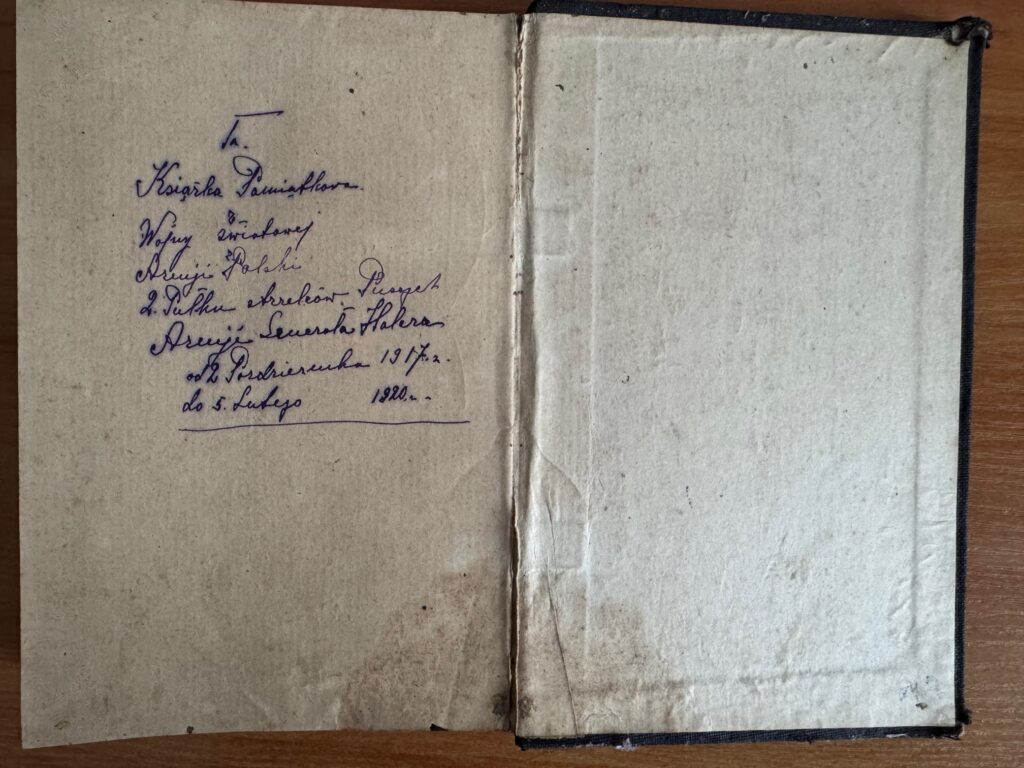 Ta.
Książka Pamiątkowa.
Wojny światowej
Armji Polski
2. Pułku Strzelców Pieszych
Armji Generała Halera
od 2 Pazdziernika 1917. r.
do 5. Lutego 1920. r.